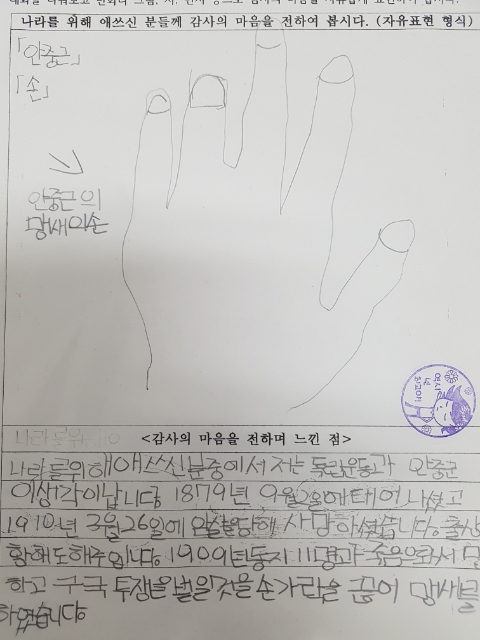 나라를 위해 애쓰신 분들께 감사의 마음을 전하여 봅시다. (자유표현 형식)
「안중근」
「손」
안중근의
맹새의손
나라를위해
<감사의 마음을 전하며 느낀 점>
나라를위해애쓰신분중에서 저는 독립운동과 안중근
이생각이납니다 1879년 9월2일에 태어나셨고
1910년 3월26일에 암살을당해 사망하셨습니다. 출생
황해도해주입니다. 1909년동지 11명과 죽음으로서
하고 구국 투쟁을벌일것을 손가락을 끊어 맹새를
하였습니다